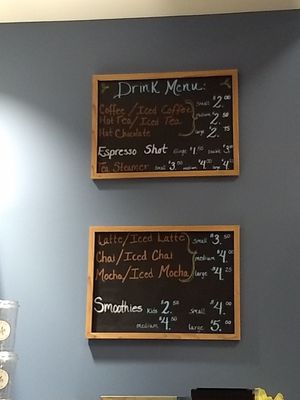 Drink Menu:
Coffee/Iced Coffee small $2.00
Hot Tea/Iced Tea medium $2.50
Hot Chocolate large $2.75
Espresso Shot single $1.50 double
Tea Steamer small $3.50 medium $4.00 large
Latte/Iced Latte small $3.50
Chai/Iced Chai medium $4.00
Mocha/Iced Mocha large $4.25
Smoothies kids $2.50 small $4.00
medium $4.50 large $5.00